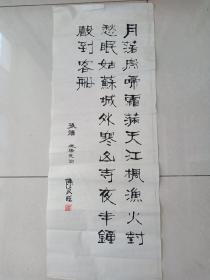 月落烏啼霜滿天江楓漁火對
愁眠姑蘇城外寒山寺夜半鐘
聲到客船
張繼 楓橋夜泊